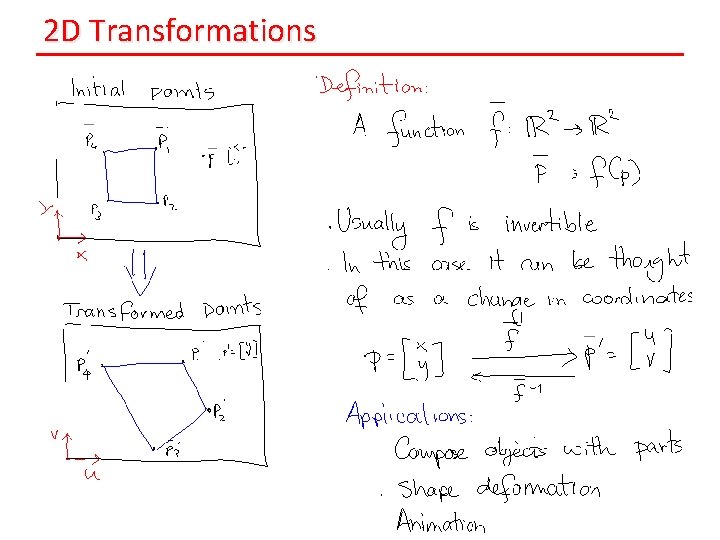 2D Transformations
Initial points
P̄4
P̄1
P̄ [x
P3
P2
y
x
Transformed points
P4'
P'
P'=[u]
P2'
P3'
v
u
Definition:
A function f̄: ℝ² → ℝ²
P̄ : f(p)
. Usually f is invertible
. In this case it can be thought
of as a change in coordinates
f̄
p = [x y]
p̄' = [u v]
f̄ -1
Applications:
Compose objects with parts
. Shape deformation
Animation